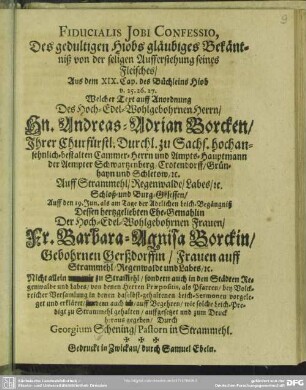 FIDUCIALIS JOBI CONFESSIO,
Des gedultigen Hiobs gläubiges Bekänt-
niß von der seligen Aufferstehung seines
Fleisches/
Aus dem XIX. Cap. des Büchleins Hiob
v. 25. 26. 27.
Welcher Text auff Anordnung
Des Hoch-Edel-Wohlgebohrnen Herrn/
Hn. Andreas-Adrian Borcken/
Ihrer Churfürstl. Durchl. zu Sachs. hochan-
sehnlich-bestalten Cammer-Herrn und Ampts-Hauptmann
der Aempter Schwartzenberg/ Crotendorff/ Grün-
hayn und Schletow/ ec.
Auff Strammehl/ Regenwalde/ Labes/ ec.
Schloß- und Burg-Gesessen/
Auff den 19. Jun. als am Tage der Adelichen Leich-Begängniß
Dessen hertzgeliebten Ehe-Gemahlin
Der Hoch-Edel-Wohlgebohrnen Frauen/
Fr. Barbara-Agnisa Borckin/
Gebohrnen Gerßdorffin/ Frauen auff
Strammehl Regenwalde und Labes/ ec.
Nicht allein in Stramehl/ sondern auch in den Städten Re-
genwalde und Labes/ von denen Herren Præpositus, als Pfarren/ bey Volck-
reicher Versamlung in denen daselbst gehaltenen Leich-Sermonen vorgele-
get und erkläret/ auch auff Begehren/ wie solche Leich-Pre-
digt zu Strammehl gehalten/ auffgesetzet und zum Druck
heraus gegeben/ Durch
Georgium Schening/ Pastorn in Strammehl.
Gedruckt in Zwickau/ durch Samuel Ebeln.